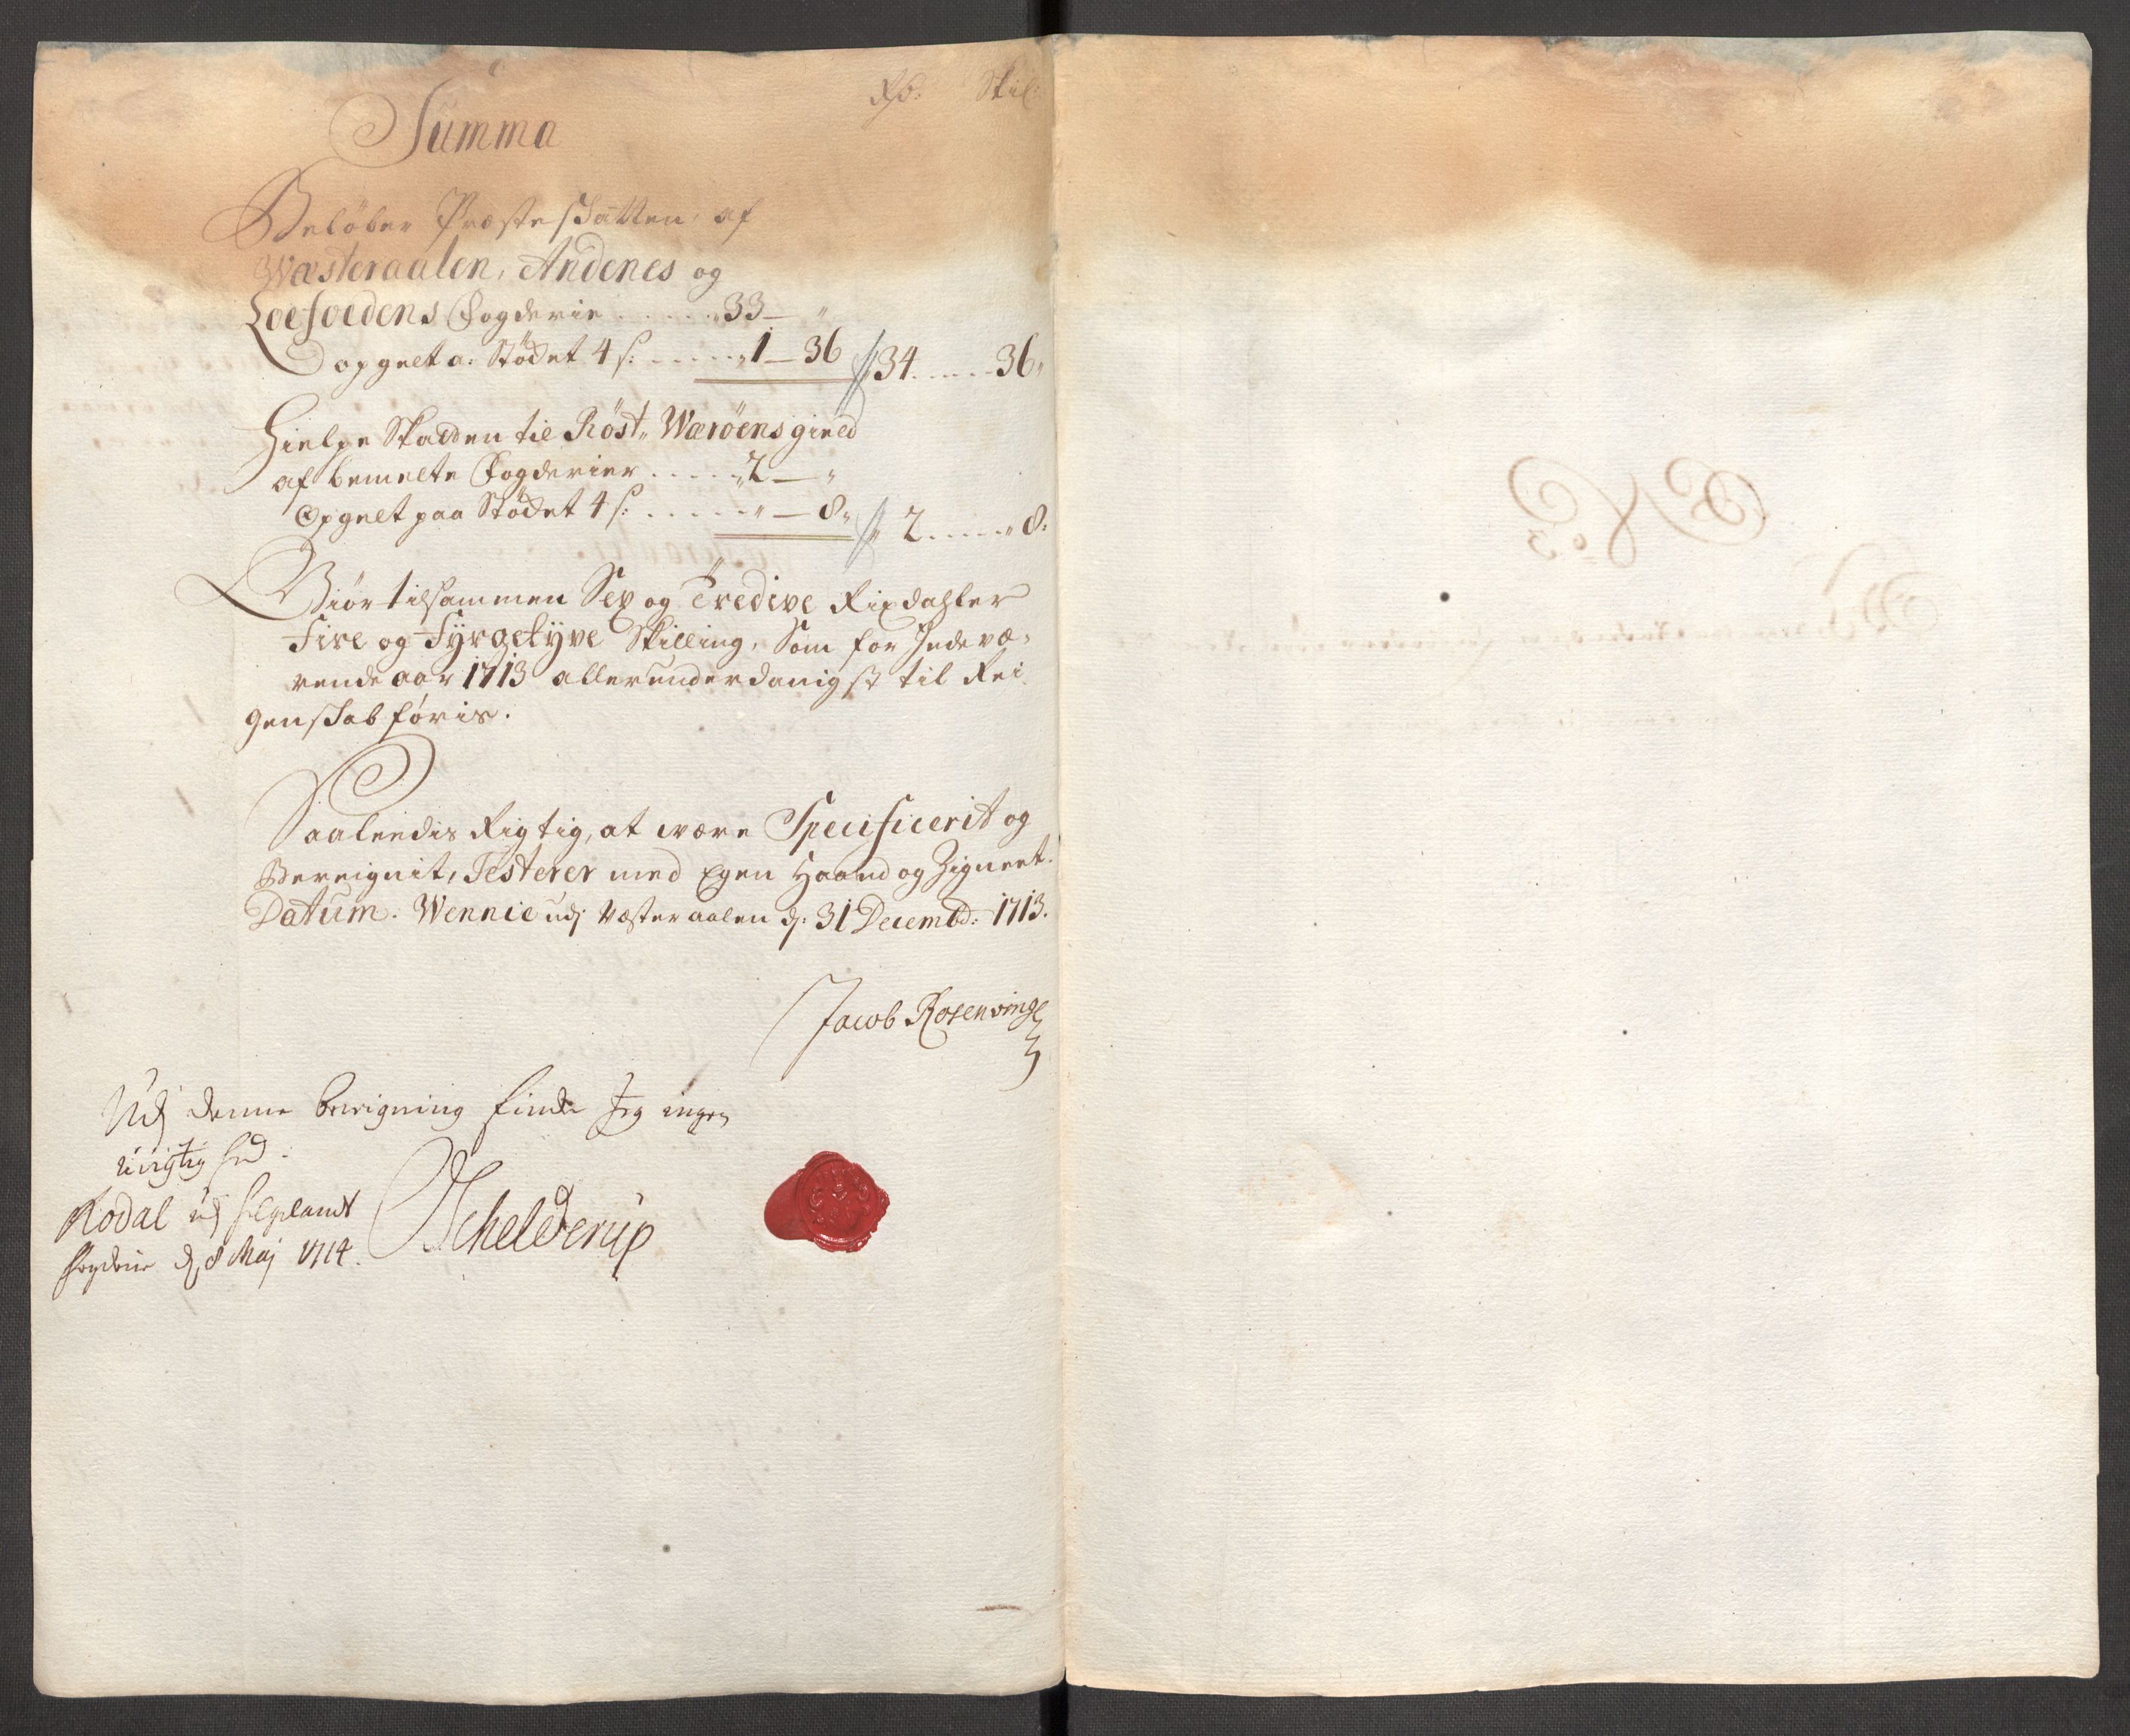 Rd: Skil:
Summa
Beløber Præsteskatten af
Wæsteraalen, Andenes og
Loefoedens Fogderie ..... 33 — "
opgelt a: Stødet 4 s: ..... 1 — 36 34 ..... 36
Hielpe Skatten til Röst, Weröens gield
af bemelte Fogderier ..... 2 — "
Opgelt paa Stødet 4 s: ..... " — 8 2 ..... 8:
Giör tilsammen Sex og Tredive Rixdahler
Fire og Fyrgetyve Skilling, Som for Indevæ-
rende aar 1713 allerunderdanigst til Rei
genskab føris.
Saaleedis Rigtig, at være Specificerit og
Bereignit, Testerer med Egen Haand og Zigneet.
Datum. Wennie udj Wæsteraalen d: 31 Decembd: 1713.
Jacob Rosenvinge
Udj denne beregning finder Jeg ingen
urigtighed.
Rodal udj Helgelandt
Fogderie dj 8 Maj 1714. Schelderup